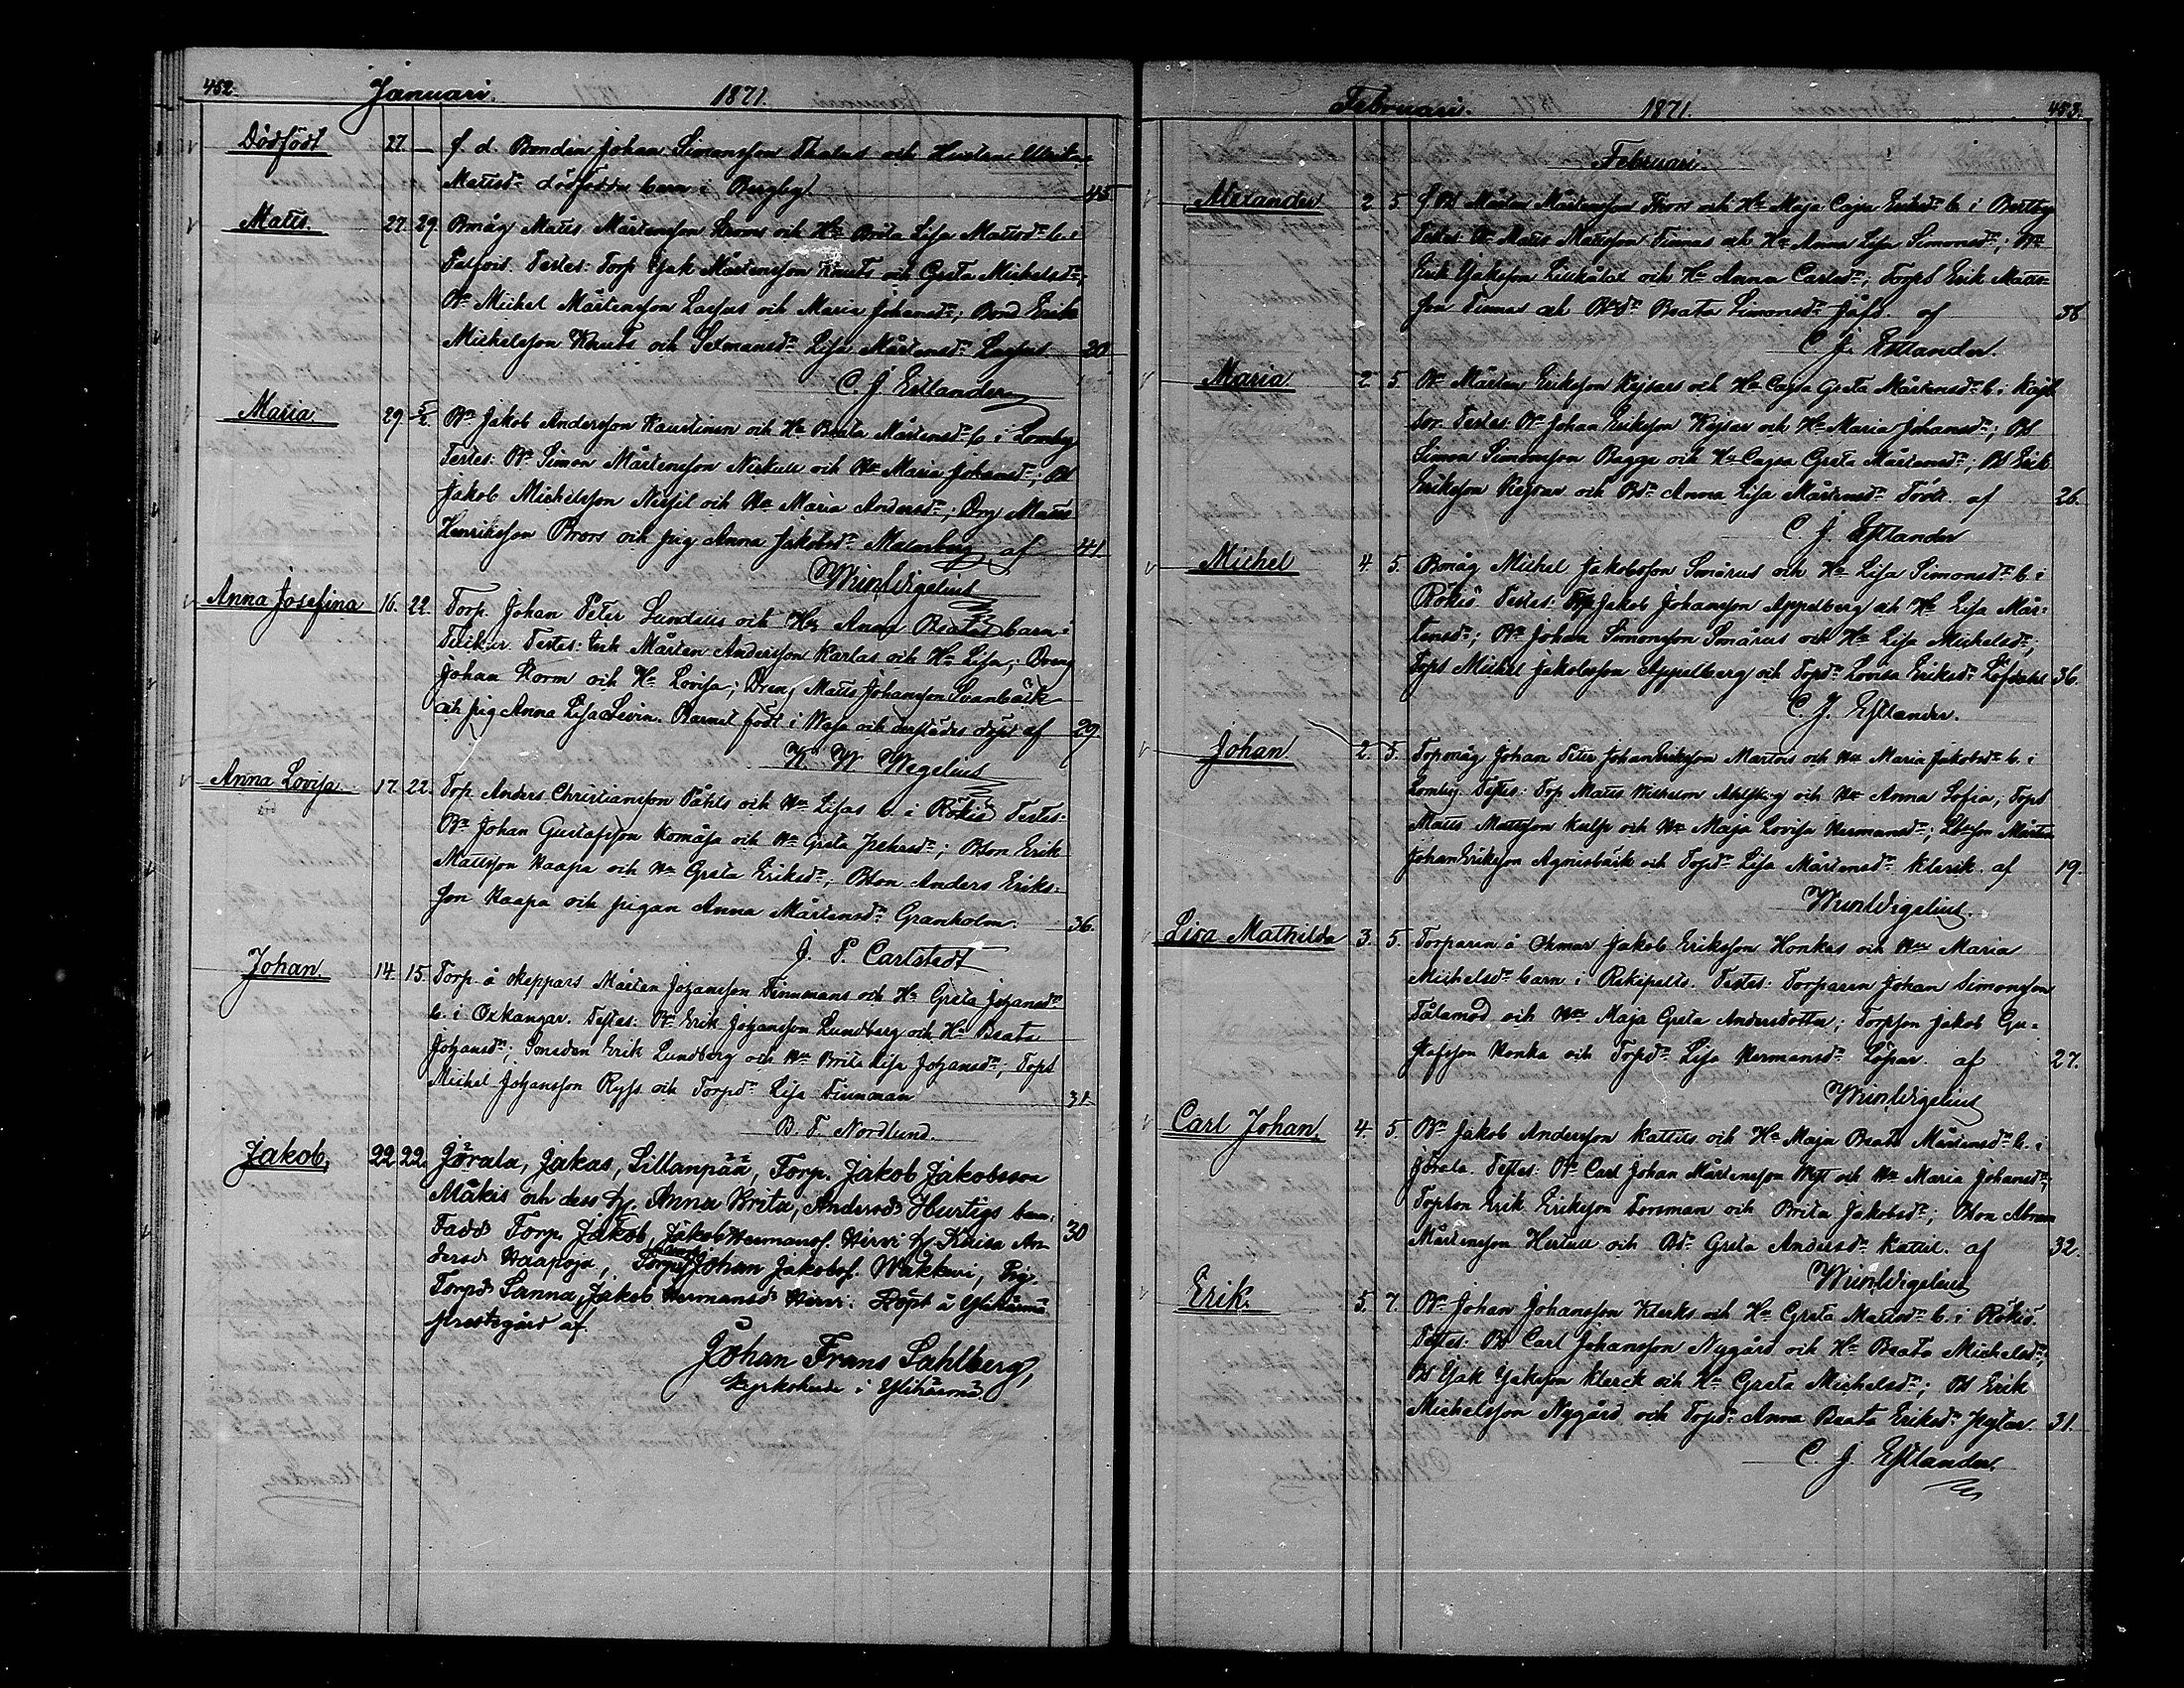 452 Januari. 1871.
Dödfödt 27. — f. d. Bonden Johan Simonsson Thalus och Hustrus Ulrika
Mattsdr dödfödda barn i Bergby. 45
Matts. 27. 29. Bmåg Matts Mårtensson och Hu Brita Lisa Mattsdr b. i
Testes: Torp Jak Mårtensson Knuts och Greta Michelsdr;
Bn Michel Mårtensson Lassus och Maria Johansdr; Bond Erik
Michelsson Knuts och Lisa Mårtensdr Lassus 20
C. J. Estlander
Maria. 29. 5/2. Bn Jakob Andersson Kaustinen och Hu Beata Mårtensdr b. i Lomby
Testes: Bn Simon Mårtensson och Hu Maria Johansdr; Bd
Jakob Michelsson och Hu Maria Andersdr; Drg Matts
Henriksson Brors och pig Anna Jakobsdr Malmberg af 41
Wegelius
Anna Josefina 16. 22. Torp. Johan Peter Lundells och Hus Anna Beatas barn i
Testes: Mårten Andersson Karlas och Hu Lisa; Dreng
Johan Storm och Hu Lovisa; Dreng Matts Johansson Svanbäck
och pig Anna Lisa Levin. Barnet födt i Wasa och derstädes döpt af 29
K. W. Wegelius
Anna Lovisa 17. 22. Torp Anders Christiansson Påhls och Hu Lisas b. i Rökiö Testes:
Bn Johan Gustafsson Komåsa och Hu Greta Pehrsdr; Bson Erik
Mattsson Kaapa och Hu Greta Eriksdr; Bson Anders Eriks-
son Kaapa och pigan Anna Mårtensdr Granholm. 36.
J. P. Carlstedt
Johan. 14. 15. Torp. å Keppars Mårten Johansson Finnmans och Hu Greta Johansdr
b. i Oxkangar. Testes: Bn Erik Johansson Lundberg och Hu Beata
Johansdr; Smeden Erik Lundberg och Hu Brita Lisa Johansdr; Tops
Michel Johansson Ryss och Torpdr Lisa Finnman 31.
B. T. Nordlund.
Jakob, 22. 22. Jörala, Jakas, Sillanpää, Torp. Jakob Jakobsson
Mäkis och dess h. Anna Brita, Andersdr Hurtigs barn.
Fadd. Torp. Jakob, Jakob Hermanss. Hirvi h. Kaisa An- 30
dersdr Haapoja, Johan Jakobss. Wakkuri, Pig.
Torpdr Sanna, Jakob Hermansdr Hirvi. Döpt å Ylihärmä
prestgård af.
Johan Frans Sahlberg,
Kyrkoherde i Ylihärmä.
Februari. 1871. 453.
Februari.
Alexander 2. 5. f. Bd Mårten Mårtensson Thors och Hu Maja Cajsa Eriksdr b. i Bertby
Testes: Bn Matts Mattsson Finnas och Hu Anna Lisa Simonsdr; Bn
Erik Jaksson och Hu Anna Carlsdr; Torps Erik Matts-
son Finnas och Bdr Beata Simonsdr Jåfs. af 38
C. J. Estlander.
Maria 2. 5. Bn Mårten Eriksson Keysars och Hu Cajsa Greta Mårtensdr b. i Kojt
Testes: Bn Johan Eriksson Keysar och Hu Maria Johansdr; Bd
Simon Simonsson Bagge och Hu Cajsa Greta Mårtensdr; Bd Erik
Eriksson Keysar och Bdr Anna Lisa Mårtensdr af 26.
C. J. Estlander
Michel 4. 5. Bmåg Michel Jakobsson Smårus och Hu Lisa Simonsdr b. i
Rökiö. Testes: Jakob Johansson Appelberg och Hu Lisa Mår-
tensdr; Bn Johan Simonsson Smårus och Hu Lisa Michelsdr;
Tops Michel Jakobsson Appelberg och Topdr Lovisa Eriksdr Löfdahl 36.
C. J. Estlander.
Johan 2. 5. Topmåg Johan Peter Johan Eriksson Martois och Hu Maria Jakobsdr b. i
Lomby. Testes: Top Matts Wilhelm Ahlskog och Hu Anna Sofia; Tops
Matts Mattsson Kulp och Hu Maja Lovisa Hermansdr; Mårten
Johan Eriksson Agnisbäck och Topdr Lisa Mårtensdr Klerik. af 19.
Wegelius.
Lisa Mathilda 3. 5. Torparen å Jakob Eriksson Honkas och Hu Maria
Michelsdr barn i Rekipelto. Testes: Torparen Johan Simonsson
Tålamod och Hu Maja Greta Andersdotter; Torpson Jakob Gu-
stafsson Honka och Torpdr Lisa Hermansdr Löpar. af 27.
Wegelius
Carl Johan, 4. 5. Bn Jakob Andersson Kattils och Hu Maja Beata Mårtensdr b. i
Jörala. Testes: Bn Carl Johan Mårtensson West och Hu Maria Johansdr;
Topson Erik Eriksson Forsman och Brita Jakobsdr; Bson Abram
Mårtensson Hertull och Bdr Greta Andersdr Kattil. af 32.
Wegelius
Erik. 5. 7. Bn Johan Johansson Klerks och Hu Greta Mattsdr b. i Rökiö.
Testes: Bd Carl Johansson Nygård och Hu Beata Michelsdr;
Bd Jak Jaksson Klerck och Hu Greta Michelsdr; Bd Erik
Michelsson Nygård och Topdr Anna Beata Eriksdr 31.
C. J. Estlander.